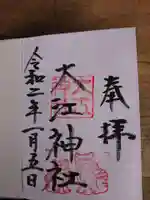 奉拝
大江神社
令和二年一月五日